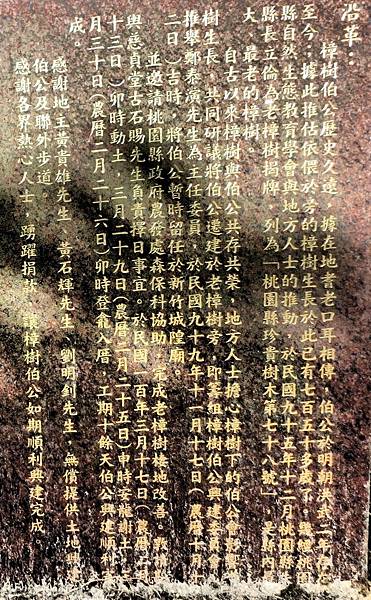 沿革:
樟樹伯公歷史久遠,據在地耆老口耳相傳,伯公於明朝洪武二年存在
至今;據此推估依偎於旁的樟樹生長於此已有七百五十多歲了。經桃園
縣自然生態教育學會與地方人士的推動,於民國九十五年十二月桃園縣
縣長立倫為老樟樹揭牌,列為「桃園縣珍貴樹木第七十八號」,是縣內
大、最老的樟樹。
自古以來樟樹與伯公共存共榮,地方人士擔心樟樹下的伯公會影響
樹生長,共同研議將伯公遷建於老樟樹旁,即籌組樟樹伯公興建委員會
推舉鄭泰演先生為主任委員,於民國九十九年十一月十七日(農曆十月十
二日)吉時,將伯公暫時留任於新竹城隍廟。
並邀請桃園縣政府農發處森保科協助,完成老樟樹棲地改善。敦請
與惠貞堂古石賜先生負責擇日事宜。於民國一百年三月十七日(農曆二月
十三日)卯時動土,三月二十九日(農曆二月二十五日)申時安龍謝土,三
月三十日(農曆二月二十六日)卯時登龕入厝,工期十餘天伯公興建順利
成。
感謝地主黃貴雄先生、黃石輝先生、劉明釗先生,無償提供土地興
伯公及聯外步道。
感謝各界熱心人士,踴躍捐獻,讓樟樹伯公如期順利興建完成。